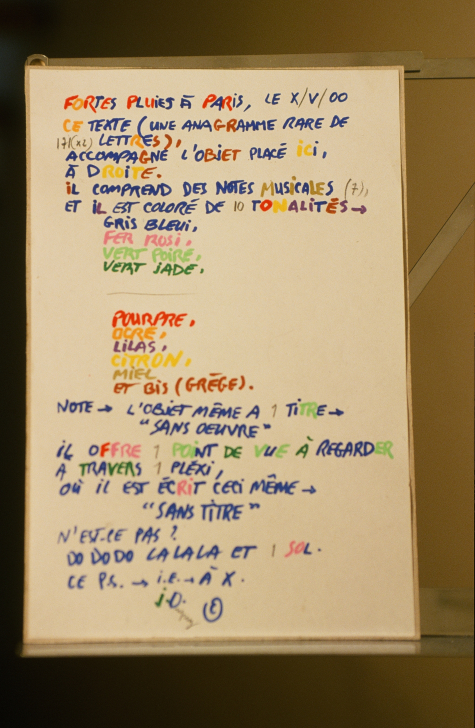 FORTES PLUIES À PARIS, LE X/V/00
CE TEXTE (UNE ANAGRAMME RARE DE
171(x2) LETTRES),
ACCOMPAGNE L'OBJET PLACÉ ICI,
À DROITE.
IL COMPREND DES NOTES MUSICALES (7),
ET IL EST COLORÉ DE 10 TONALITÉS →
GRIS BLEUI,
FER ROSI,
VERT POIRE,
VERT JADE,
POURPRE,
OCRE,
LILAS,
CITRON,
MIEL
ET BIS (GRÈGE).
NOTE → L'OBJET MÊME A 1 TITRE →
"SANS OEUVRE"
IL OFFRE 1 POINT DE VUE À REGARDER
A TRAVERS 1 PLÉXI,
OÙ IL EST ÉCRIT CECI MÊME →
"SANS TITRE"
N'EST-CE PAS ?
DO DO DO LA LA LA ET 1 SOL.
CE P.S. → i.E. → À X.
J.D. (E)